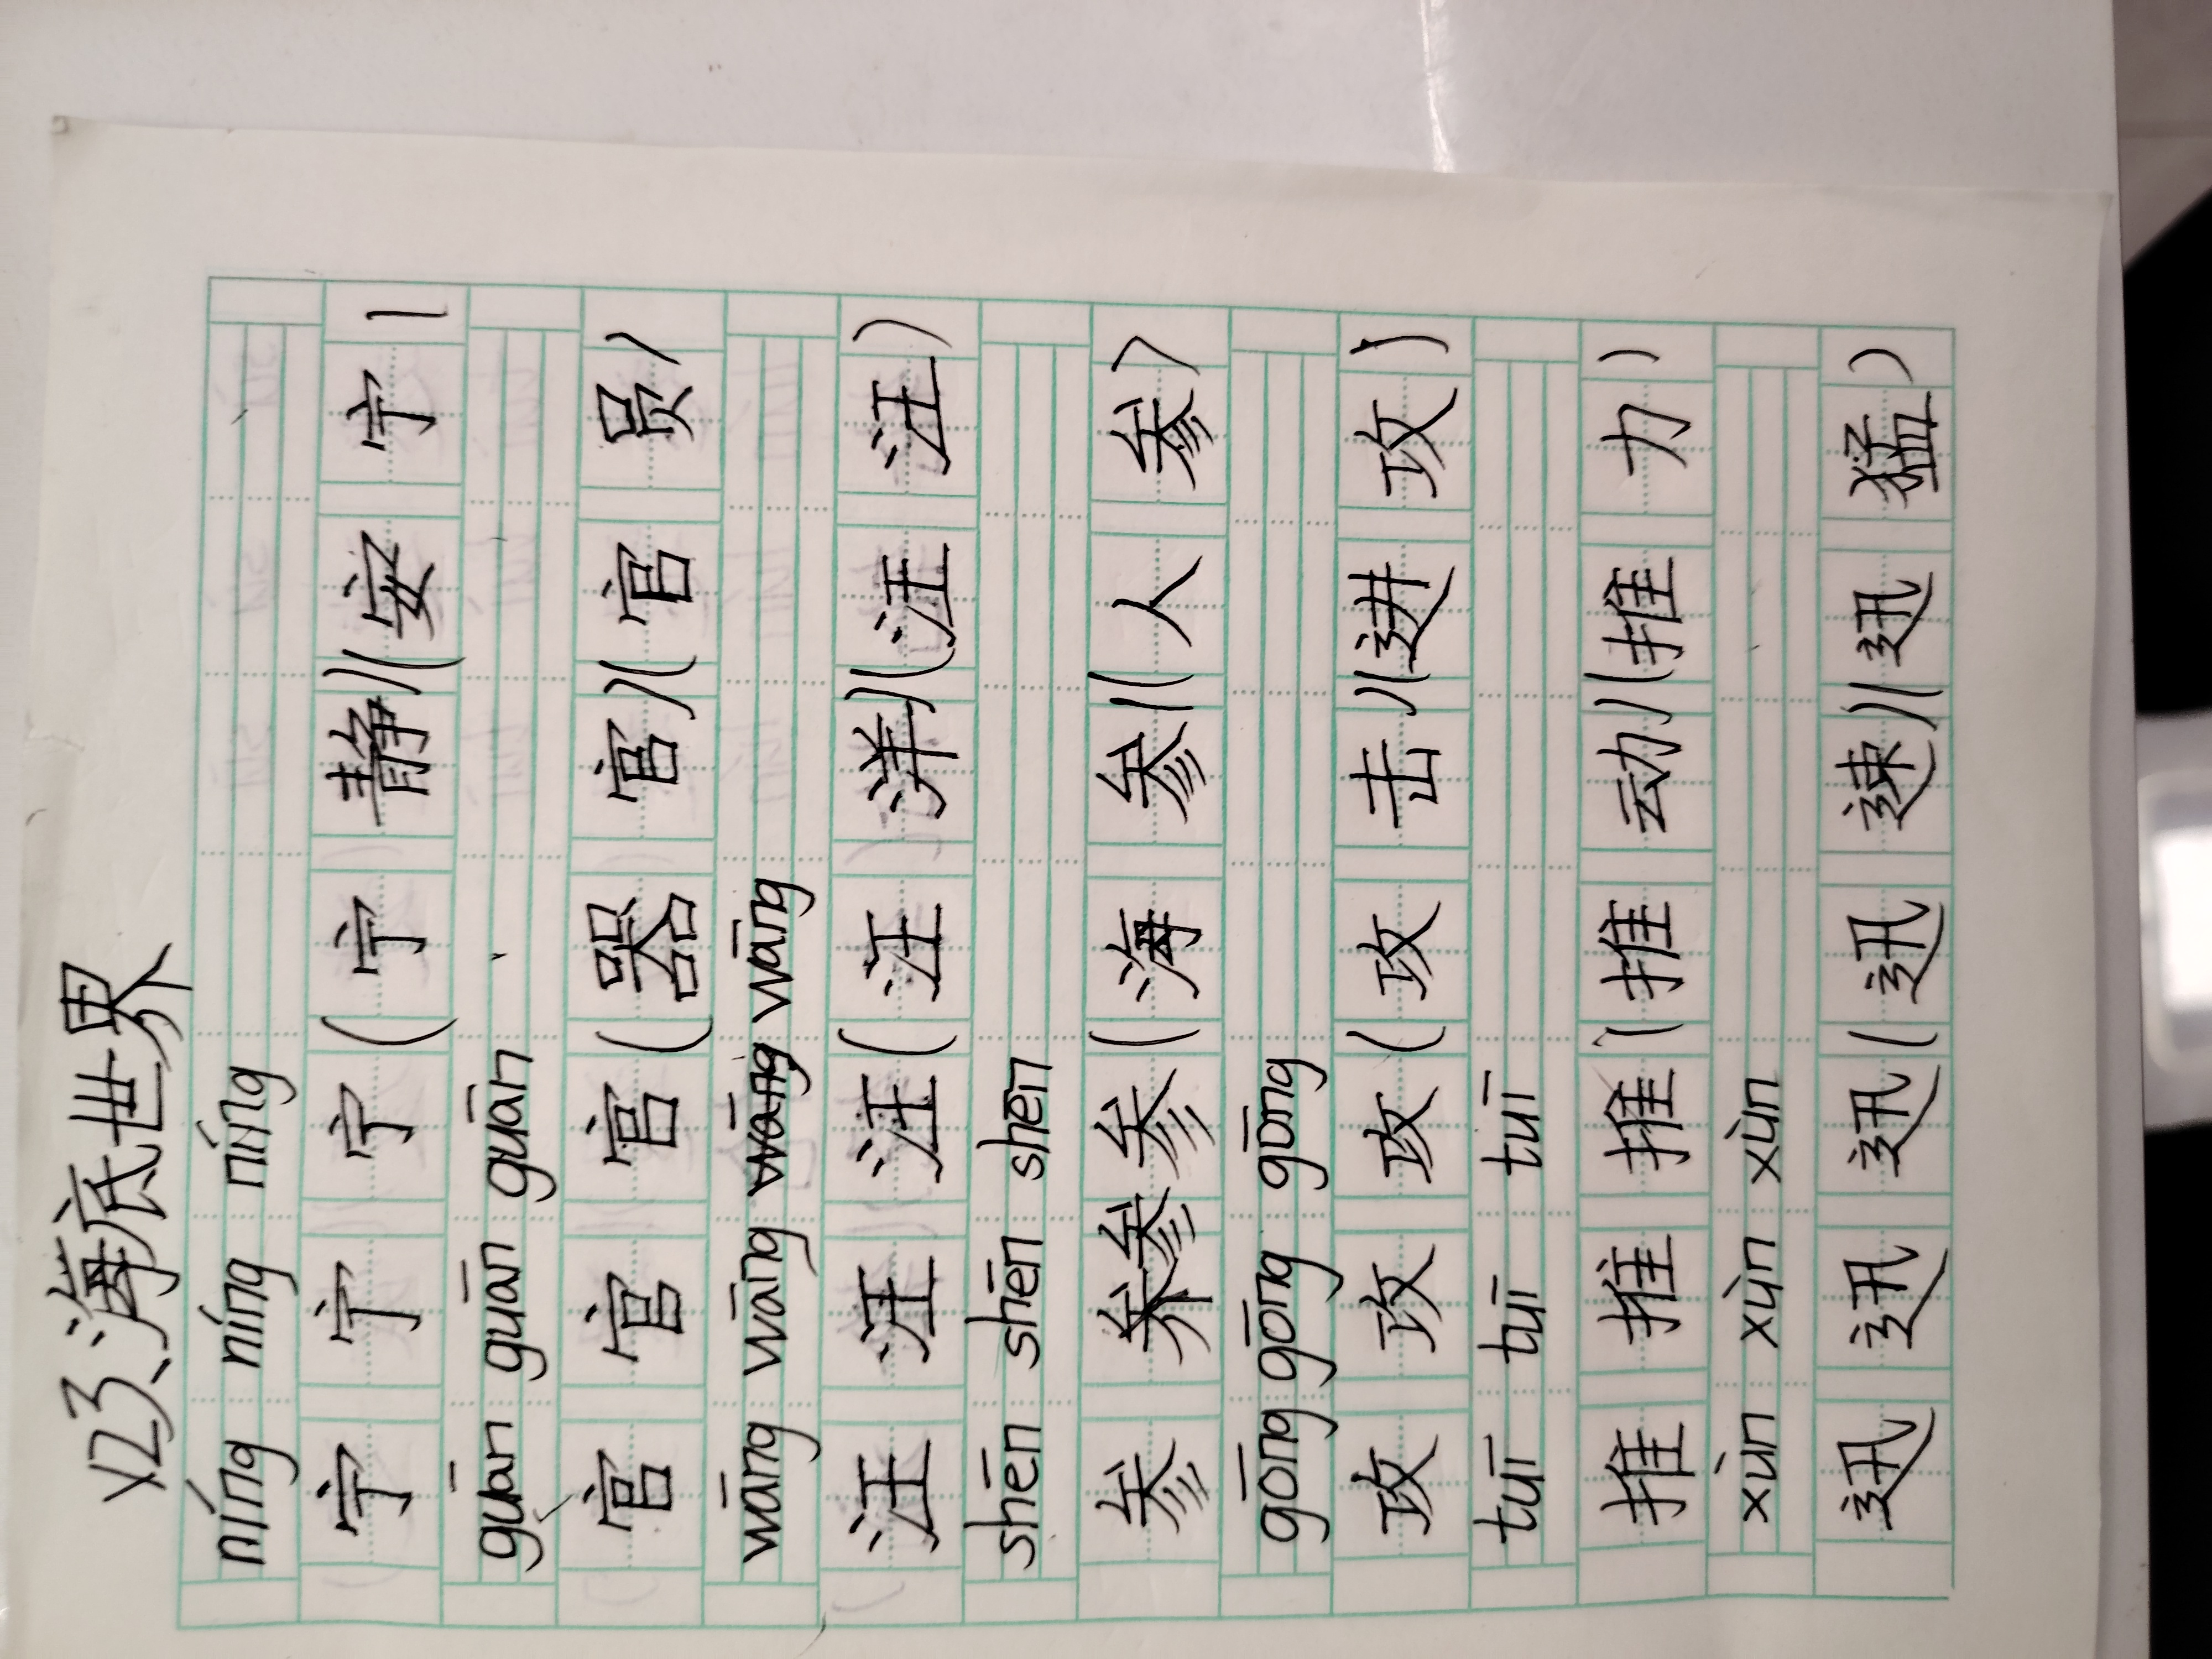 x23、海底世界
níng níng níng
宁 宁 宁 (宁 静)(安 宁)
guān guān guān
官 官 官 (器 官)(官 员)
wāng wāng wāng wāng
汪 汪 汪 (汪 洋)(汪 汪)
shēn shēn shēn
参 参 参 (海 参)(人 参)
gōng gōng gōng
攻 攻 攻 (攻 击)(进 攻)
tuī tuī tuī
推 推 推 (推 动)(推 力)
xùn xùn xùn
迅 迅 迅 (迅 速)(迅 猛)